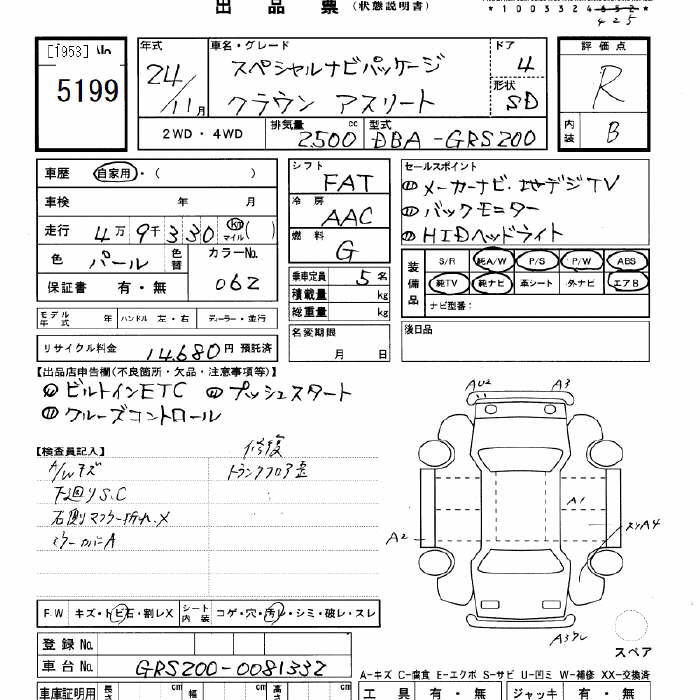 出 品 票 (状態説明書)
* 1 0 0 3 3 2 4
4 2 5
[1953]
5199
年式 24/11月
車名・グレード スペシャルナビパッケージ
クラウン アスリート
ドア 4
形状 SD
2WD ・ 4WD
排気量 2500 cc
型式 DBA-GRS200
評 価 点
R
内装 B
車歴 自家用・( )
車検 年 月
走行 4万 9千 3 3 0 km マイル ( )
色 パール 色替 カラーNo. 062
保証書 有・無
シフト FAT
冷 房 AAC
燃 料 G
乗車定員 5 名
積載量 kg
総重量 kg
名変期限 月 日
セールスポイント
① メーカーナビ・地デジTV
① バックモニター
① HIDヘッドライト
装備品 S/R 純A/W P/S P/W ABS
純TV 純ナビ 革シート 外ナビ エアB
ナビ型番:
後日品
モデル年式 年 ハンドル 左・右 ディーラー・並行
リサイクル料金 14,680 円 預託済
【出品店申告欄(不良箇所・欠品・注意事項等)】
① ビルトインETC ① プッシュスタート
① クルーズコントロール
【検査員記入】 修復
A/Wキズ トランクフロア歪
下廻りS.C
右側マフラー折れ.X
ミラーカバーA
AU2 A3
A1
A2
スリA4
スペア
FW キズ・トビ石・割レX シート内装 コゲ・穴・汚レ・シミ・破レ・スレ
登 録 No.
車 台 No. GRS200-0081332
A-キズ C-腐食 E-エクボ S-サビ U-凹ミ W-補修 XX-交換済
車庫証明用 長さ cm 幅 cm 高さ cm
工 具 有・無 ジャッキ 有・無